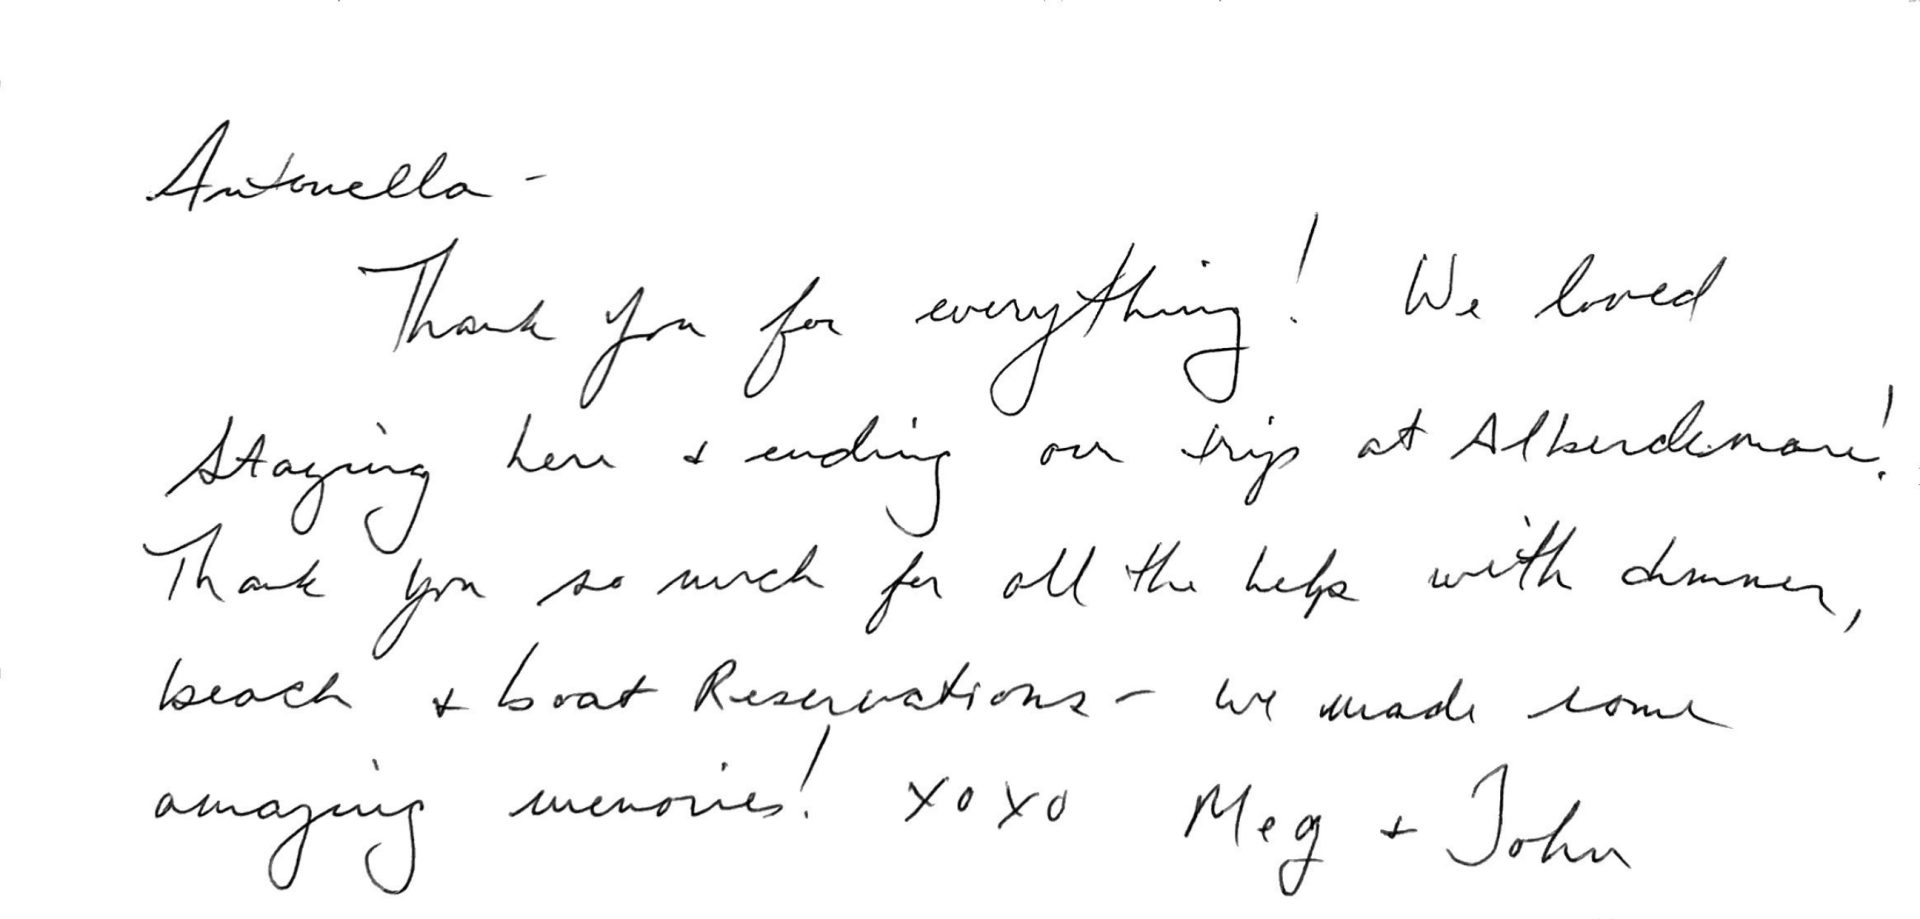 Antonella -
Thank you for everything! We loved
Staying here + ending our trip at Alberdimare!
Thank you so much for all the help with dinner,
beach + boat Reservations - we made some
amazing memories! xoxo Meg + John